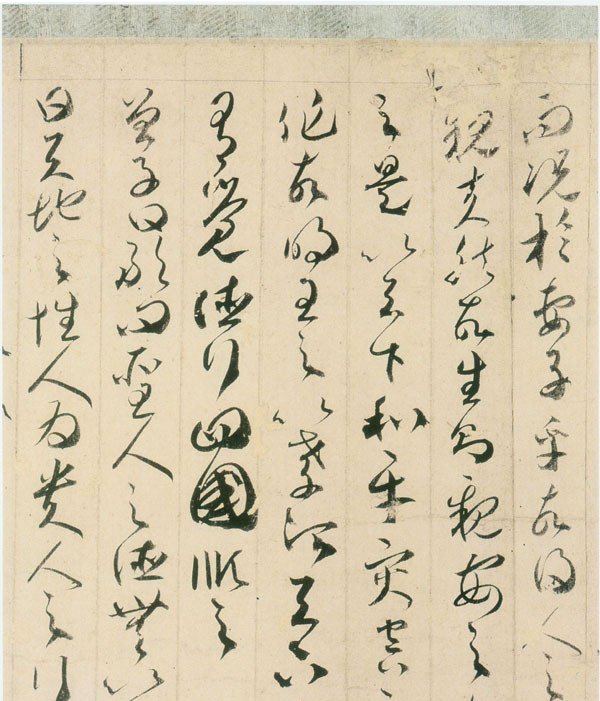 而況於妻子乎故得人之
親夫然故生則親安之
之是以天下和平災害
作故明王之以孝治天下
有覺德行四國順之
曾子曰敢問聖人之德無以
曰天地之性人為貴人之行